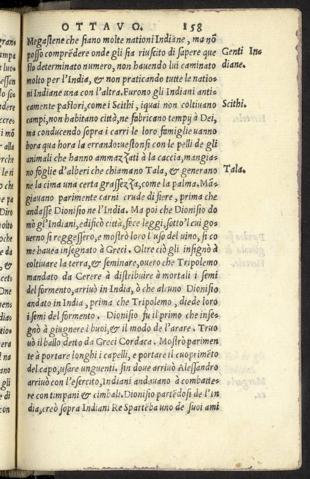 OTTAVO. 158
Megastene che siano molte nationi Indiane, ma nõ
posso comprẽdere onde gli sia riuscito di sapere que
sto determinato numero, non hauendo lui caminato
molto per l'India, & non praticando tutte le natio-
ni Indiane una con l'altra. Furono gli Indiani anti-
camente pastori, come i Scithi, iquai non coltiuano
campi, non habitano città, ne fabricano tempij à Dei,
ma conducendo sopra i carri le loro famiglie uanno
hora qua hora la errando: uestonsi con le pelli de gli
animali che hanno ammazzati à la caccia, mangia-
no foglie d'alberi che chiamano Tala, & generano
ne la cima una certa grassezza, come la palma. Mã-
giauano parimente carni crude di fiere, prima che
andasse Dionisio ne l'India. Ma poi che Dionisio do
mò gl'Indiani, edificò città, fece leggi, sotto'l cui go-
uerno si reggessero, e mostrò loro l'uso del uino, si co
me hauea insegnato à Greci. Oltre ciò gli insegnò à
coltiuare la terra, & seminare, ouero che Tripolemo
mandato da Cerere à distribuire à mortali i semi
del formento, arriuò in India, ò che alcuno Dionisio
andato in India, prima che Tripolemo, diede loro
i semi del formento. Dionisio fu il primo che inse-
gnò à giugnere i buoi, & il modo de l'arare. Truo
uò il ballo detto da Greci Cordaca. Mostrò parimen
te à portare longhi i capelli, e portare il cuoprimẽto
del capo, usare unguenti. fin doue arriuò Alessandro
arriuò con l'esercito, Indiani andauano à combatte-
re con timpani & cimbali. Dionisio partẽdosi de l'In
dia, creò sopra Indiani Re Spartẽba uno de suoi ami
Genti In-
diane.
Scithi.
Tala.